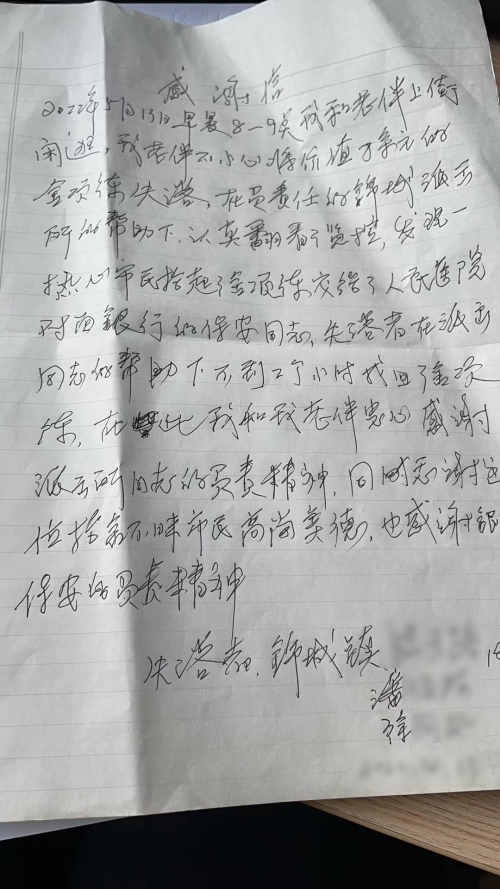 感谢信
2022年5月13日早晨8-9点我和老伴上街
闲逛,我老伴不小心将价值万余元的
金项练失落,在负责任的锦城派出
所的帮助下,认真翻看了监控,发现一
热心市民捡起金项练交给了人民医院
对面银行的保安同志,失落者在派出
同志的帮助下不到2个小时找回金项
练,在此我和我老伴衷心感谢
派出所同志的负责精神,同时感谢这
位拾金不昧市民高尚美德,也感谢银
保安的负责精神
失落者,锦城镇
潘
徐